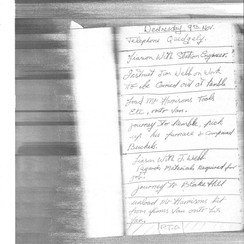 Wednesday, 9th Nov.
Telephone Quidgely.
Liaison With Station Engineer.
Instruct Jim Webb on Work
to be Carried out at Pemble
Load Mr Harrisons Tools
etc, onto Van.
Journey To Pemble, pick
up his furnace in Compound
Bucket.
Liaison With J. Webb
Materials Required for
Journey to Blake Hill
unload Mr Harrisons kit
from Van onto his
Van.
P.T.O.